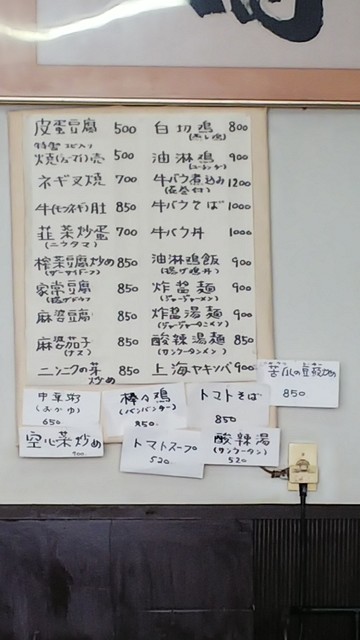 皮蛋豆腐 500
特製 エビ入り
焼(シューマイ)売 500
ネギ叉焼 700
牛(センマイ)肚 850
韮菜炒蛋 700
(ニラタマ)
搾菜豆腐炒め 850
(ザーサイドーフ)
家常豆腐 850
麻婆豆腐 850
麻婆茄子 850
(ナス)
ニンニクの芽炒め 850
白切鶏 800
(蒸し鶏)
油淋鶏 900
牛バラ煮込み 1200
牛バラそば 1000
牛バラ丼 1000
油淋鶏飯 900
(揚げ鶏丼)
炸醤麺 900
(ジャージャーメン)
炸醤湯麺 900
(ジャージャータンメン)
酸辣湯麺 850
(サンラータンメン)
上海ヤキソバ 900
850
(おかゆ)
650
棒々鶏
(バンバンジー)
850.
トマトそば
850
空心菜炒め
900
トマトスープ
520.
酸辣湯
(サンラータン)
520